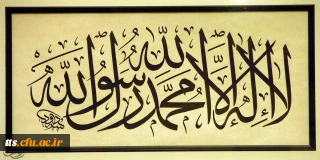 لا إله إلا الله محمد رسول الله
tts.cfu.ac.ir